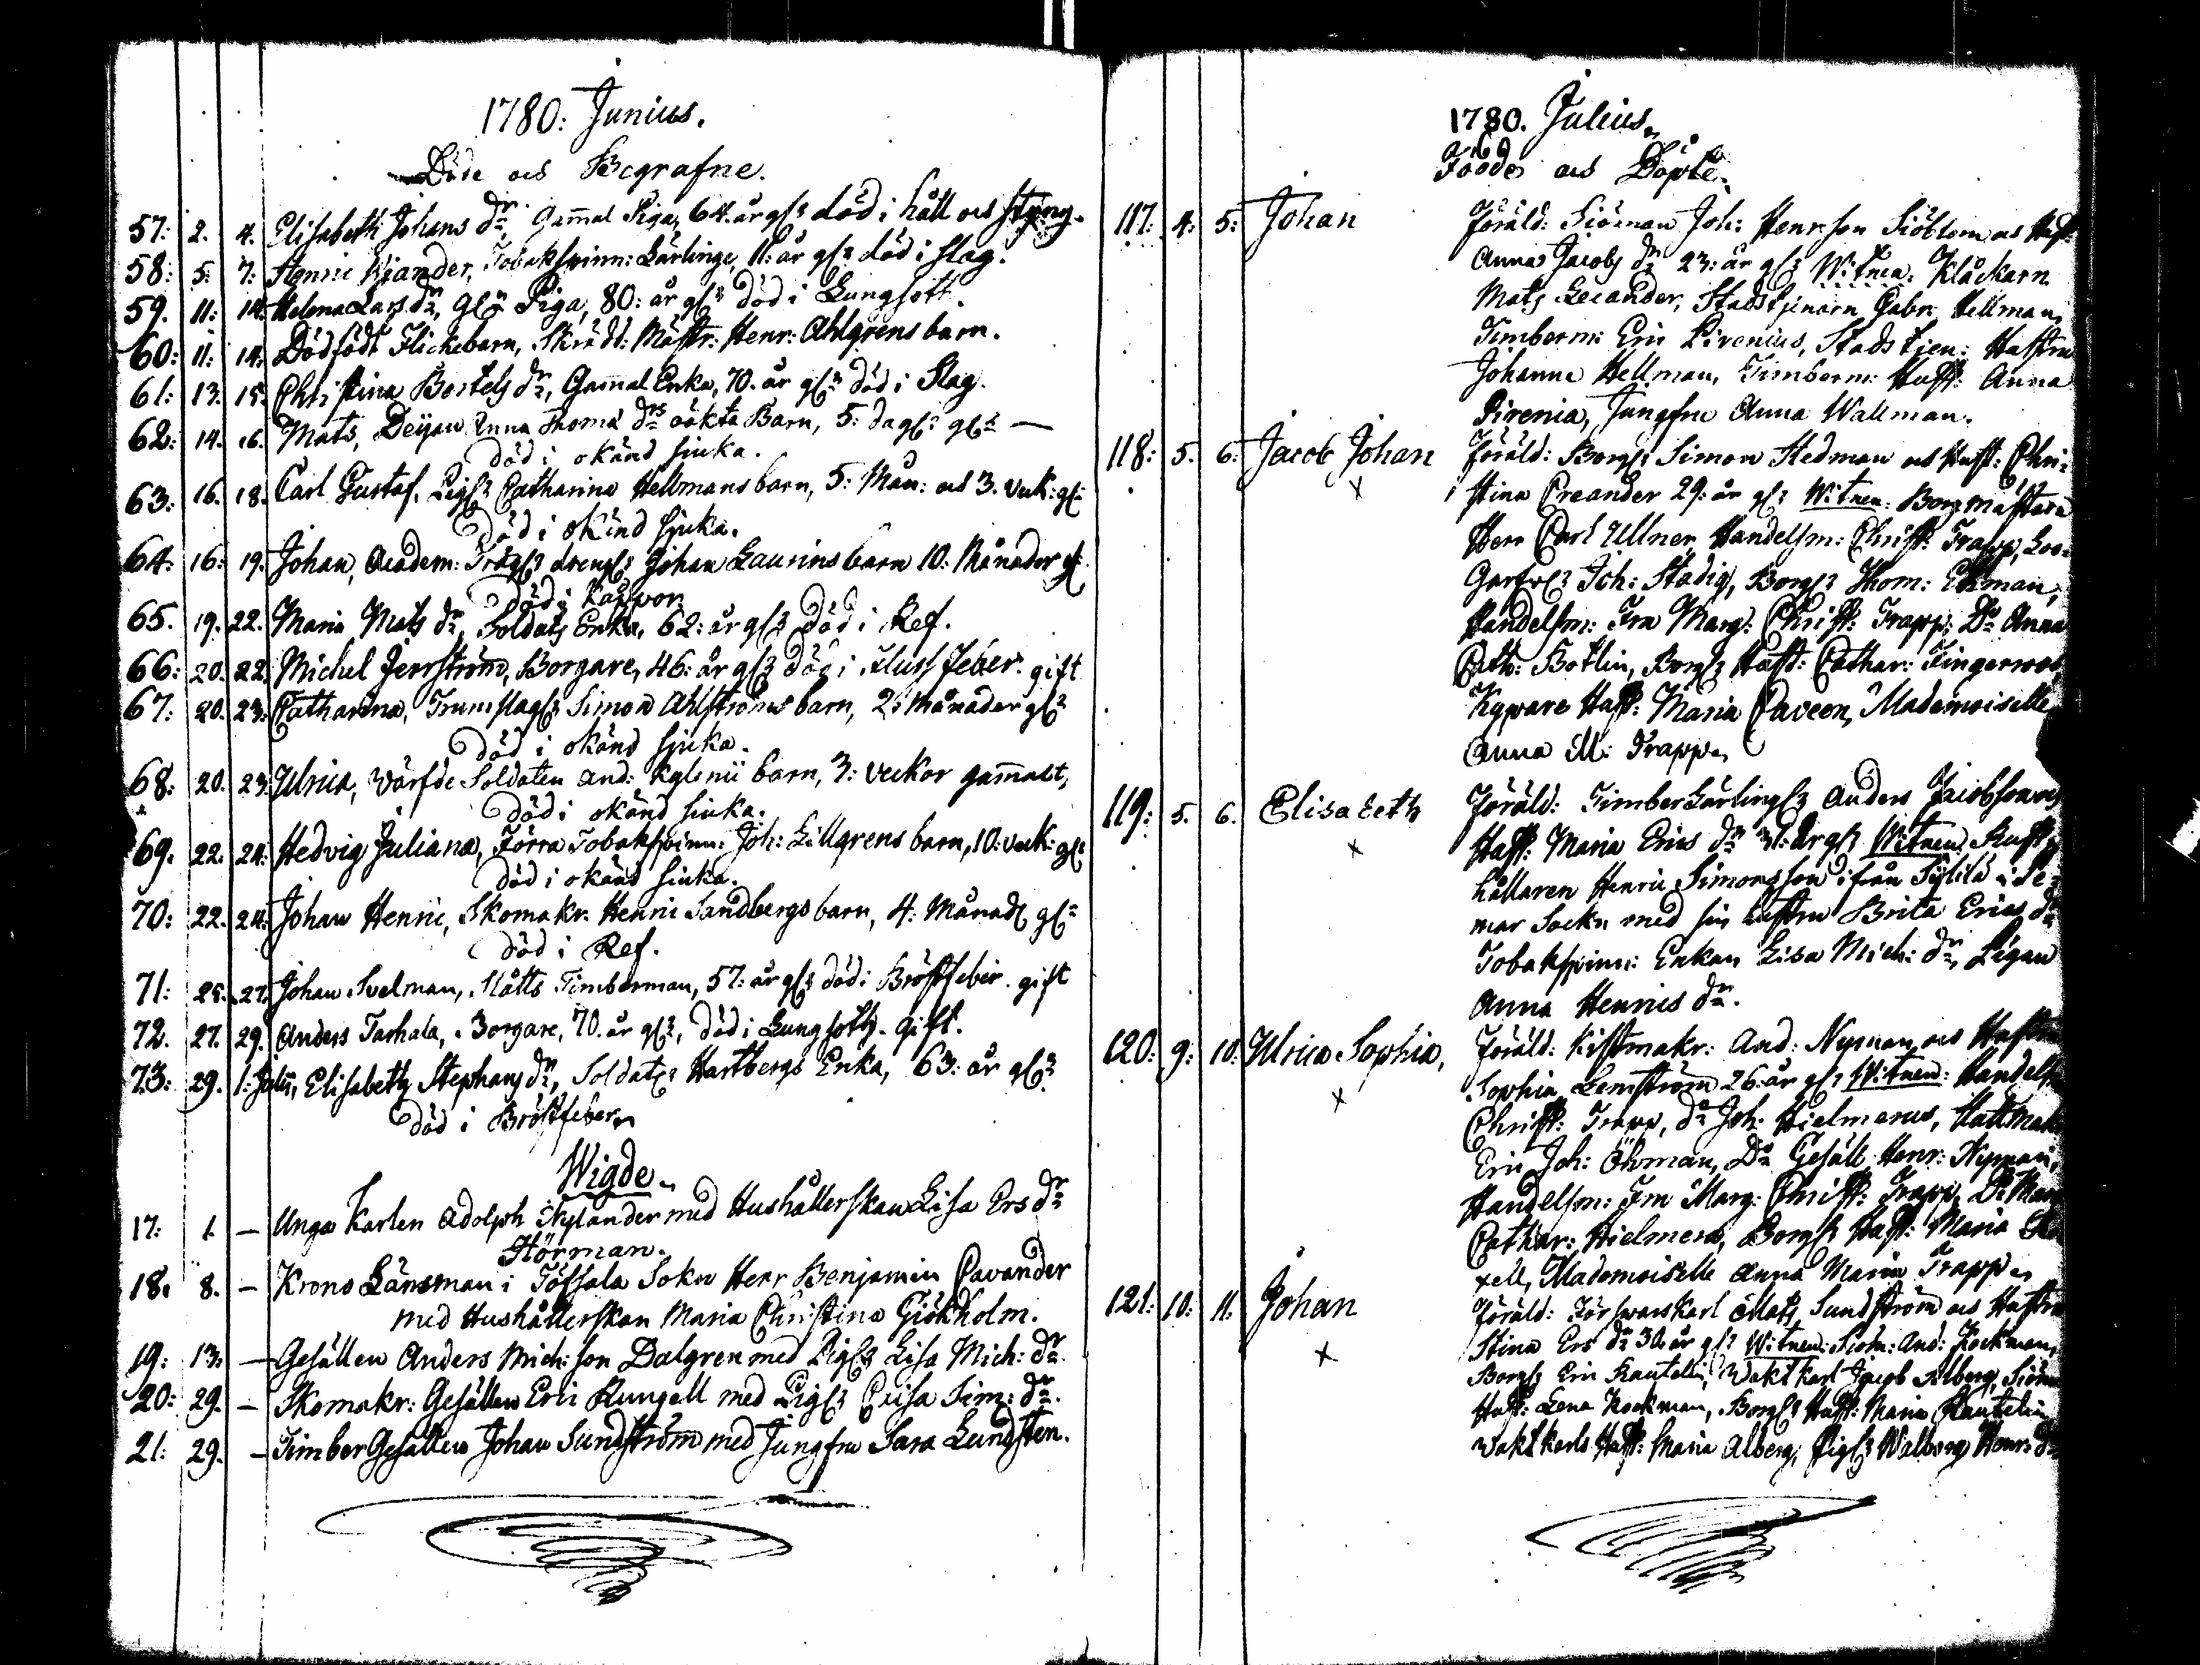 1780: Junius.
Döde och Begrafne.
57: 2. 4. Elisabeth Johans dr. Gammal Piga, 64. år gl: död i håll och styng.
58: 5: 7: Henric Kiander, Tobakspinn: Lärlinge, 11: år gl: död i slag.
59. 11: 14: Helena Lars dr, gl: Piga, 80: år gl: död i Lungsott.
60: 11: 14: Dödfödt Flickebarn, Skrädd: Mäst: Henr: Ahlgrens barn.
61: 13. 15: Christina Bertels dr, Gammal Enka, 70. år gl: död i Slag.
62: 14. 16. Mats, Deijan Anna Thomæ drs oäkta Barn, 5: dag: gl: —
död i okänd siuka.
63: 16. 18. Carl Gustaf, Pig: Catharina Hellmans barn, 5: Mån: och 3. veck: gl:
död i okänd sjuka.
64: 16: 19. Johan, Academ: Träg: dreng: Johan Laurins barn 10: Månader gl:
död i Kåppor
65. 19. 22. Maria Mats dr, Soldats Enka, 62: år gl: död i Ref.
66: 20. 22. Michel Jerrström, Borgare, 46: år gl: död i Fluss Feber. gift
67: 20. 23: Catharina, Trumslag: Simon Ahlströms barn, 2: Månader gl:
död i okänd sjuka.
68: 20. 23: Ulrica, Värfde Soldaten And: Kylenii barn, 3: veckor gammalt,
död i okänd siuka.
69. 22. 24: Hedvig Juliana, Förra Tobakspinn: Joh: Lillgrens barn, 10: veck: gl:
död i okänd siuka.
70: 22. 24: Johan Henric, Skomakr. Henric Sandbergs barn, 4: Månad: gl:
död i Ref.
71: 25. 27. Johan Svelman, Slåtts Timberman, 57: år gl: död i Bröstfeber. gift
72. 27. 29. Anders Tarhala, Borgare, 70. år gl:, död i Lungsoth. Gift.
73: 29. 1: Julii, Elisabeth Stephans dr, Soldat: Hartbergs Enka, 63: år gl:
död i Bröstfeber
Wigde.
17: 1. — Unga Karlen Adolph Nylander med Hushållerskan Lisa Ers dr
Hörman.
18. 8. — Krono Länsman i Töfsala Sokn Herr Benjamin Cavander
med Hushållerskan Maria Christina Giökholm.
19: 13: — Gesällen Anders Mich: son Dalgren med Pig: Lisa Mich: dr.
20: 29. — Skomakr: Gesällen Eric Rungell med Pig: Caisa Sim: dr.
21: 29. — Timber Gesällen Johan Sundström med Jungfru Sara Lundsten.
1780. Julius.
Födde och Döpte.
117. 4: 5: Johan Föräld: Siöman Joh: Henrson Siöblom och Hust:
Anna Jacobs dr 23: år gl: Witnen: Klåckarn
Mats Lecander, Stadstjenarn Gabr. Hellman,
Timberm: Eric Pirenius, Stadstjen: Hustru
Johanna Hellman, Timberm: Hust: Anna
Pirenia, Jungfru Anna Wallman.
118: 5. 6: Jacob Johan Föräld: Borg: Simon Hedman och Hust: Chri-
stina Creander 29: år gl: Witnen: Borgmästare
Herr Carl Ullner, Handelsm: Christ: Trapp, Loo-
Garfv: Joh: Stadig, Borg: Thom: Ekman,
Handelsm: Fru Marg: Christ: Trapp, Do Anna
Cath: Botlin, Borg: Hust: Cathar: Fingerroos,
Kypare Hust: Maria Caveen, Mademoiselle
Anna M: Trapp
119: 5. 6. Elisabeth Föräld: Timber Lärling: Anders Jacobsons
Hust: Maria Erics dr 31: år gl: Witnen: Rust-
hållaren Henric Simonsson ifrån Sylilä i Le-
mar Sockn med sin hustru Brita Erics dr
Tobakspinn: Enkan Lisa Mich: dr, Pigan
Anna Henrics dr.
120: 9: 10: Ulrica Sophia, Föräld: Kistmakr: And: Nyman och Hustru
Sophia Lemström 26: år gl: Witnen: Handelsm
Christ: Trapp, do Joh: Hielmerus, Hattmak
Eric Joh: Öhrman, Do Gesäll Henr: Nyman,
Handelsm: Fru Marg: Christ: Trapp, Do Marg
Cathar: Hielmera, Borg: Hust: Maria
xell, Mademoiselle Anna Maria Trapp
121: 10: 11: Johan Föräld: Försvarskarl Mats Sundström och Hustru
Stina Ers dr 30. år gl: Witnen: Siöm: And: Kockman,
Borg: Eric Rautelin, Waktkarl Jacob Alberg, Siöm
Hust: Lena Kockman, Borg: Hust: Maria Rautelin
Waktkarls Hust: Maria Alberg, Pig: Walborg Henr: dr